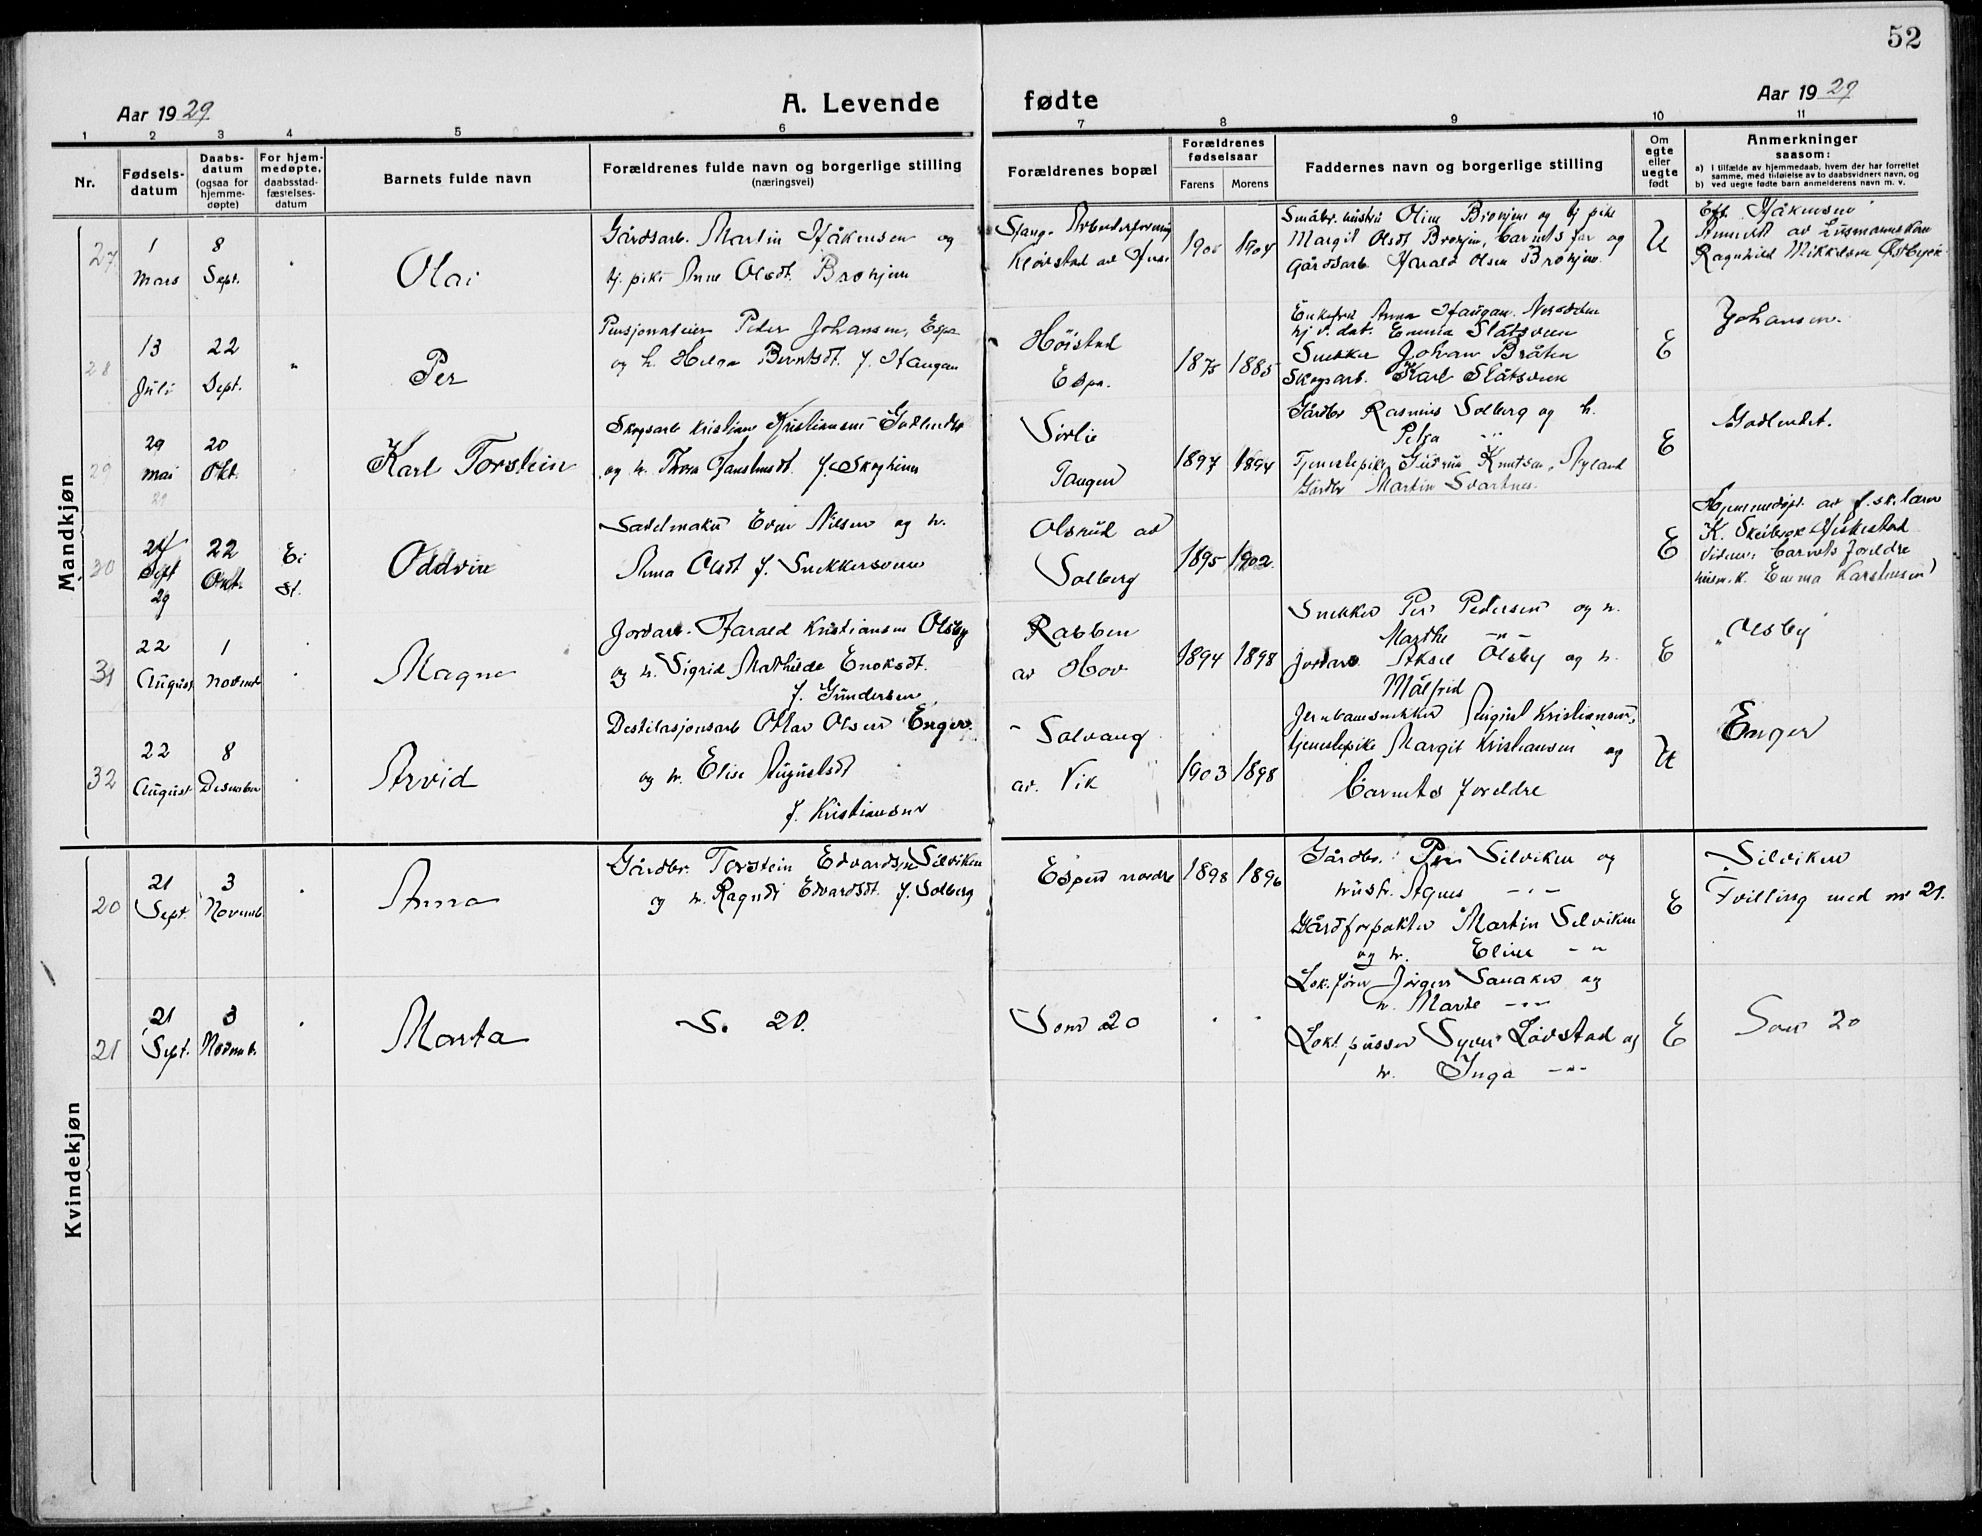 52
Aar 1929
A. Levende fødte
Aar 1929
1 2 3 4 5 6 7 8 9 10 11
Nr.
Fødsels-
datum
Daabs-
datum
(ogsaa for
hjemme-
døpte)
For hjem-
medøpte,
daabsstad-
fæstelses-
datum
Barnets fulde navn
Forældrenes fulde navn og borgerlige stilling
(næringsvei)
Forældrenes bopæl
Forældrenes
fødselsaar
Farens
Morens
Faddernes navn og borgerlige stilling
Om
egte
eller
uegte
født
Anmerkninger
saasom:
a) i tilfælde av hjemmedaab, hvem der har forrettet
samme, med tilføielse av to daabsvidners navn, og
b) ved uegte fødte barn anmelderens navn m. v.
Mandkjøn
27
1
Mars
8
Sept.
Olai
Gårdsarb. Martin Håkensen og
tj. pike Anne Olsdt. Brohjem
Stang. Arbeiderforening
Kløvstad av
1904
Småbr. hustru Oline Brohjem og tj. pike
Margit Olsdt Brohjem, barnets far og
Gårdsarb. Harald Olsen Brohjem
U
Eft. Håkensen
Anmeldt av
Ragnhild Mikkelsen
28
13
Juli
22
Sept.
"
Per
Pensjonateier Peder Johansen, Espa
og h. Helga Berntsdt. f. Haugan
Høistad
Espa.
1875 1885
Enkefru Anna Haugan.
hj. v. dat. Emma Slåtsveen
Snekker Johan Bråten
Skogsarb. Karl Slåtsveen
E
Johansen.
29
29
Mai
29
20
Okt.
Karl Torstein
Skogsarb Kristian Kristiansen Godlendet
og h. Thora f. Skogheim
Sørlie
Tangen
1897 1894
Gårdbr Rasmus Solberg og h.
Petra -"-
Tjenestepike Gudrun Knutsen, Nyland
Gårdbr Martin Svartnes.
E
Godlendet.
30
24
Sept
29
22
Okt.
Ei
St.
Oddvin
Sadelmaker Even Nilsen og h.
Anna Olsdt f. Snekkersveen
Olsrud av
Solberg
1895 1902.
E
Hjemmedøpt av f. sk. lærer
K. Skeiberg
vidner: barnets foreldre
husm.k. Emma Karstensen
31
22
August
1
Novemb
Magne
Jordarb. Harald Kristiansen Olsby
og h. Sigrid Mathilde Enoksdt.
f. Gundersen
Rabben
av Hov
1894 1898
Snekker Per Pedersen og h.
Marthe -"-
Jordarb Aksel Olsby og h.
Målfrid
E
"Olsby
32
22
August
8
Desember
Arvid
Destilasjonsarb Ottar Olsen Enger.
og h. Elise Augustsdt
f. Kristiansen
Solvang
av. Vik
1903 1898
Jernbanesnekker August Kristiansen,
tjenestepike Margit Kristiansen og
Barnets foreldre
U
Enger
Kvindekjøn
20
21
Sept.
3
Novemb
Anna
Gårdbr. Torstein Edvardsen Silviken
og h. Ragndi Edvardsdt. f. Solberg
Espen nordre
1898 1896
Gårdbr. Per Silviken og
hustr. Agnes -"-
Gårdforpakter Martin Silviken
og h. Eline -"-
E
Silviken
Tvilling med nr 21.
21
21
Sept.
3
Novemb.
Marta
S. 20.
Som 20
Lok.fører Jørgen Sanaker og
h. Marte -"-
Lok. pusser Syver Løvstad og
h. Inga -"-
E
Som 20